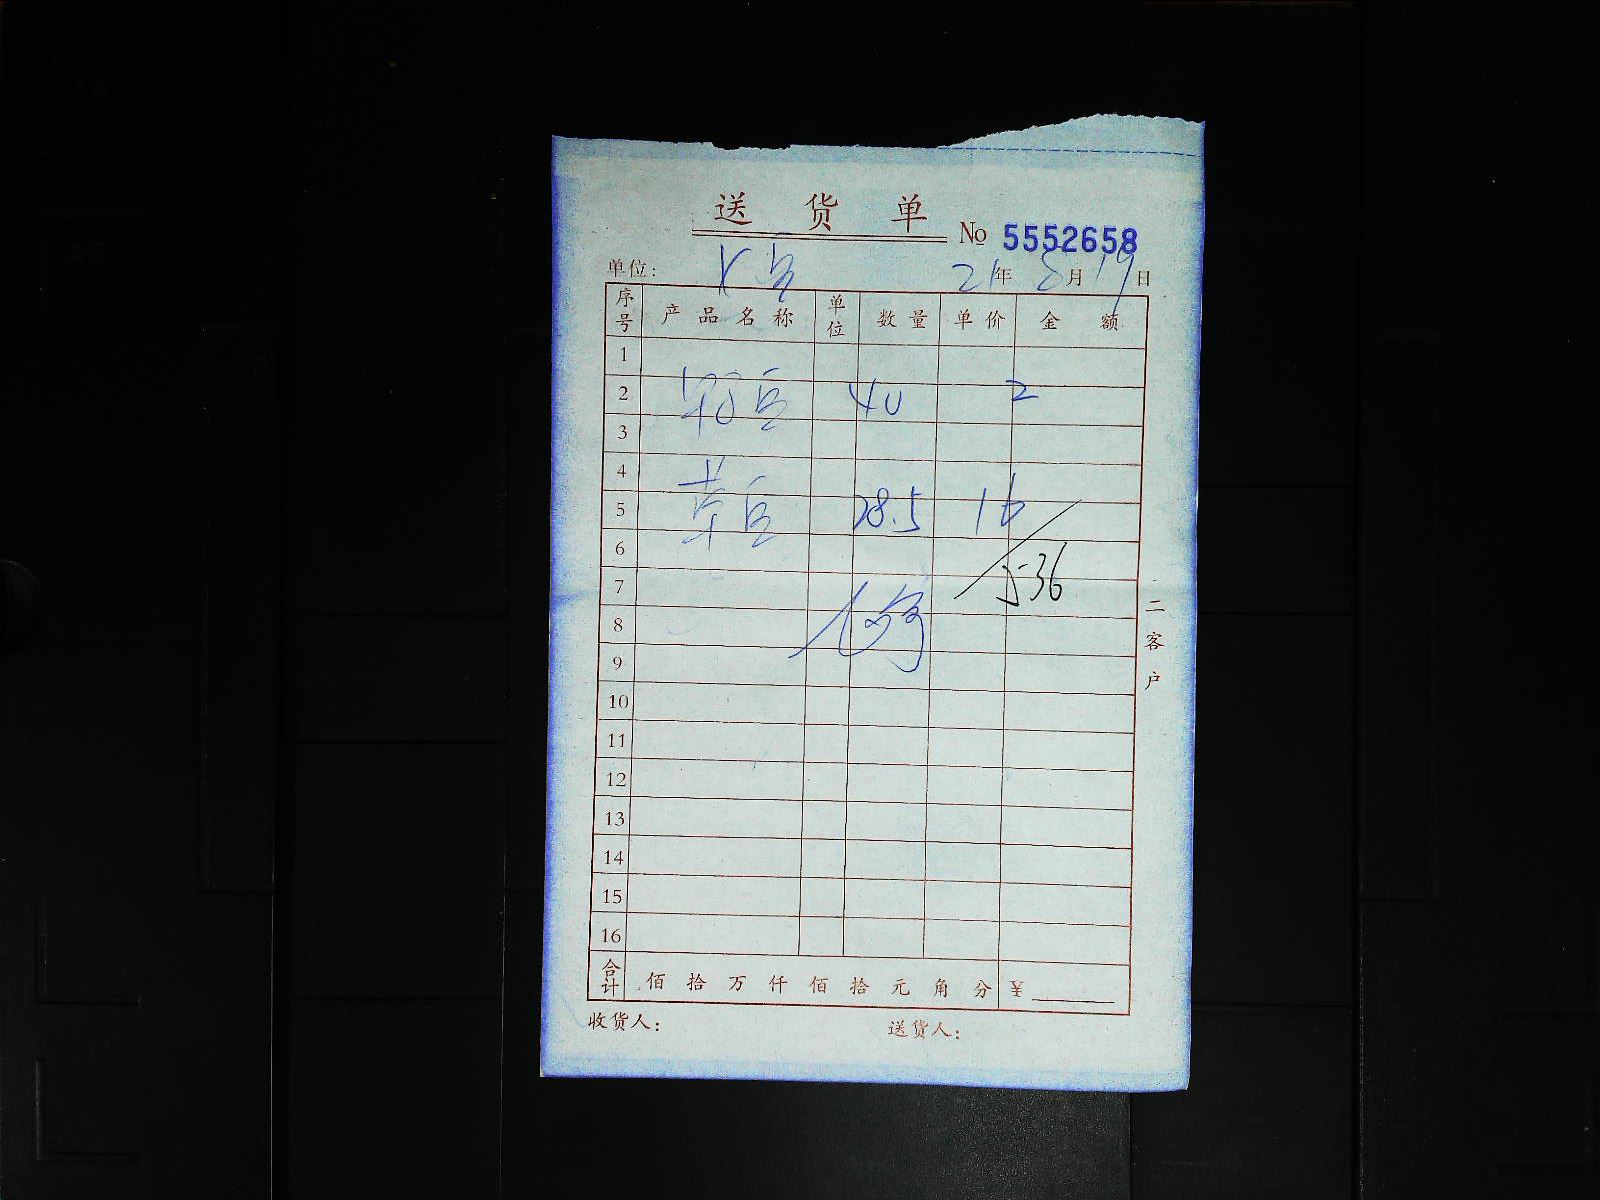 送货单
No 5552658
单位: 21年8月19日
序号 产品名称 单位 数量 单价 金额
1
2 40 2
3
4
5 28.5 16
6
536
7
8
9
10
11
12
13
14
15
16
合计 佰拾万仟佰拾元角分 ¥
收货人: 送货人:
二客户